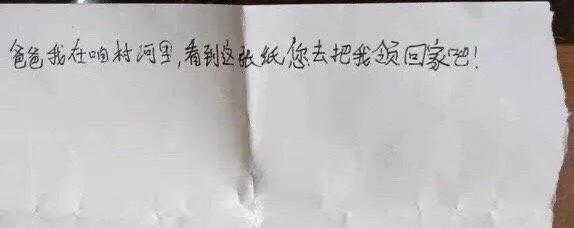 爸爸我在咱村河里,看到这张纸您去把我领回家吧!